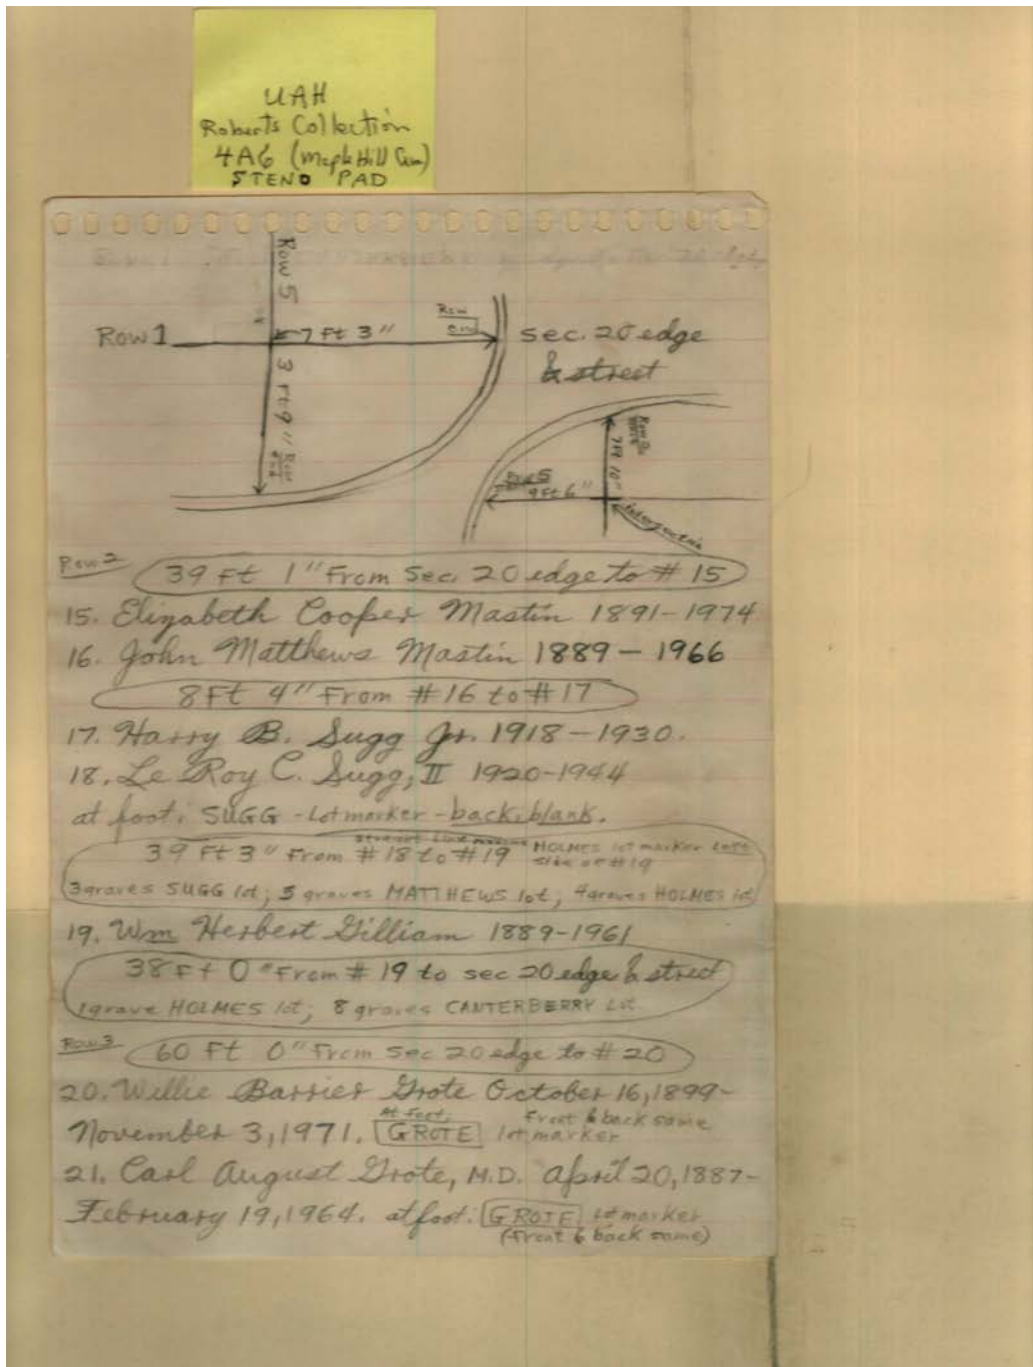 UAH
Roberts Collection
4A6 (Maple Hill Cem)
STENO PAD
Row 5
Row 1
7 Ft 3"
Row
End
sec. 20 edge
& street
3 Ft 9"
Row
End
7 Ft 10"
Row 5
9 Ft 6"
Row 2
39 Ft 1" From Sec. 20 edge to # 15
15. Elizabeth Cooper Mastin 1891-1974
16. John Matthews Mastin 1889 - 1966
8 Ft 4" From #16 to #17
17. Harry B. Sugg Jr. 1918-1930.
18. Le Roy C. Sugg, II 1920-1944
at foot: SUGG - Lot marker - back blank.
39 Ft 3" From #18 to #19 HOLMES lot marker Left
side of #19
3 graves SUGG lot; 5 graves MATTHEWS lot; 4 graves HOLMES lot
19. Wm Herbert Gilliam 1889-1961
38 Ft 0" From # 19 to sec 20 edge & street
1 grave HOLMES lot; 8 graves CANTERBERRY Lot
Row 3
60 Ft 0" From Sec 20 edge to # 20
20. Willie Barrier Grote October 16, 1899-
November 3, 1971. At foot: GROTE lot marker Front & back same
21. Carl August Grote, M.D. April 20, 1887-
February 19, 1964. at foot: GROTE Lot marker
(Front & back same)